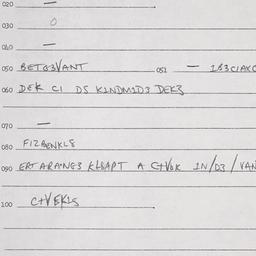 020 —
030 0
040 —
050 BETG3VANT 051 — 1B3CIAKC
060 DEK CI DS KINDM1D3 DEK3
070 —
080 FIZBENKLS
090 ERTARANG3 KLBAPT A C+VOK IN/D3/VAN
100 C+VEKLS